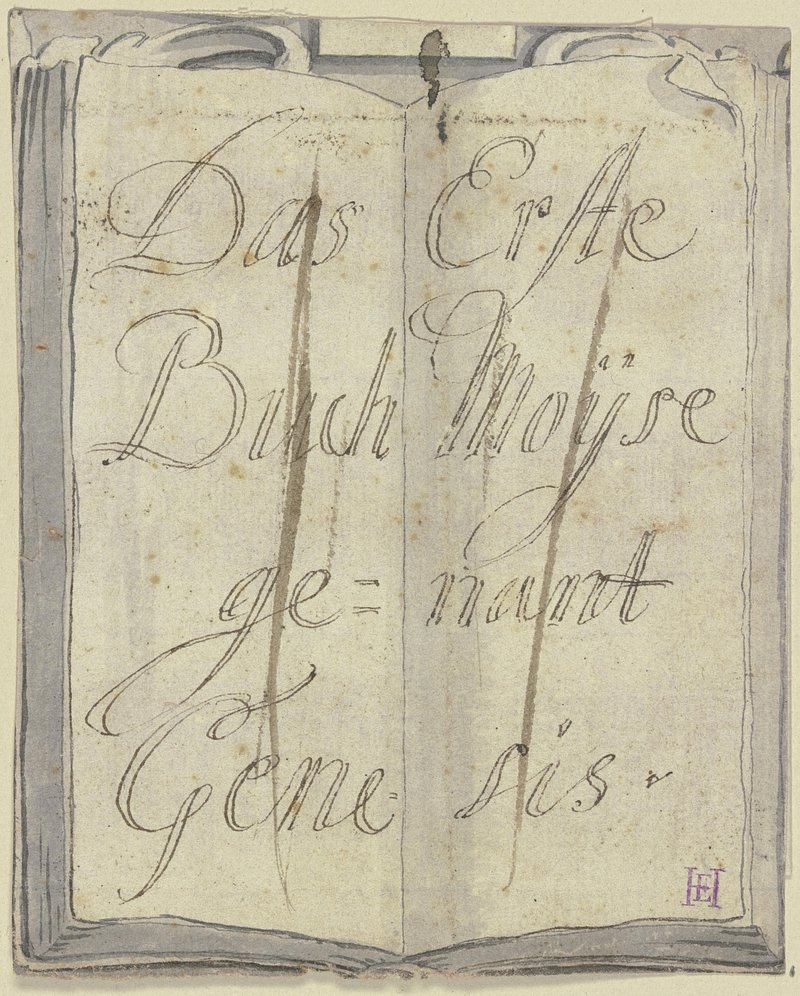 Das Erste
Buch Moÿse
ge= namt
Gene= sis.
HE